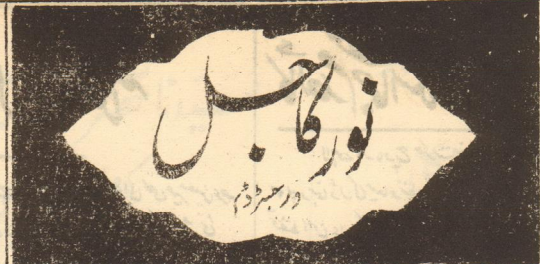 نور کاجل
درجہ دوم